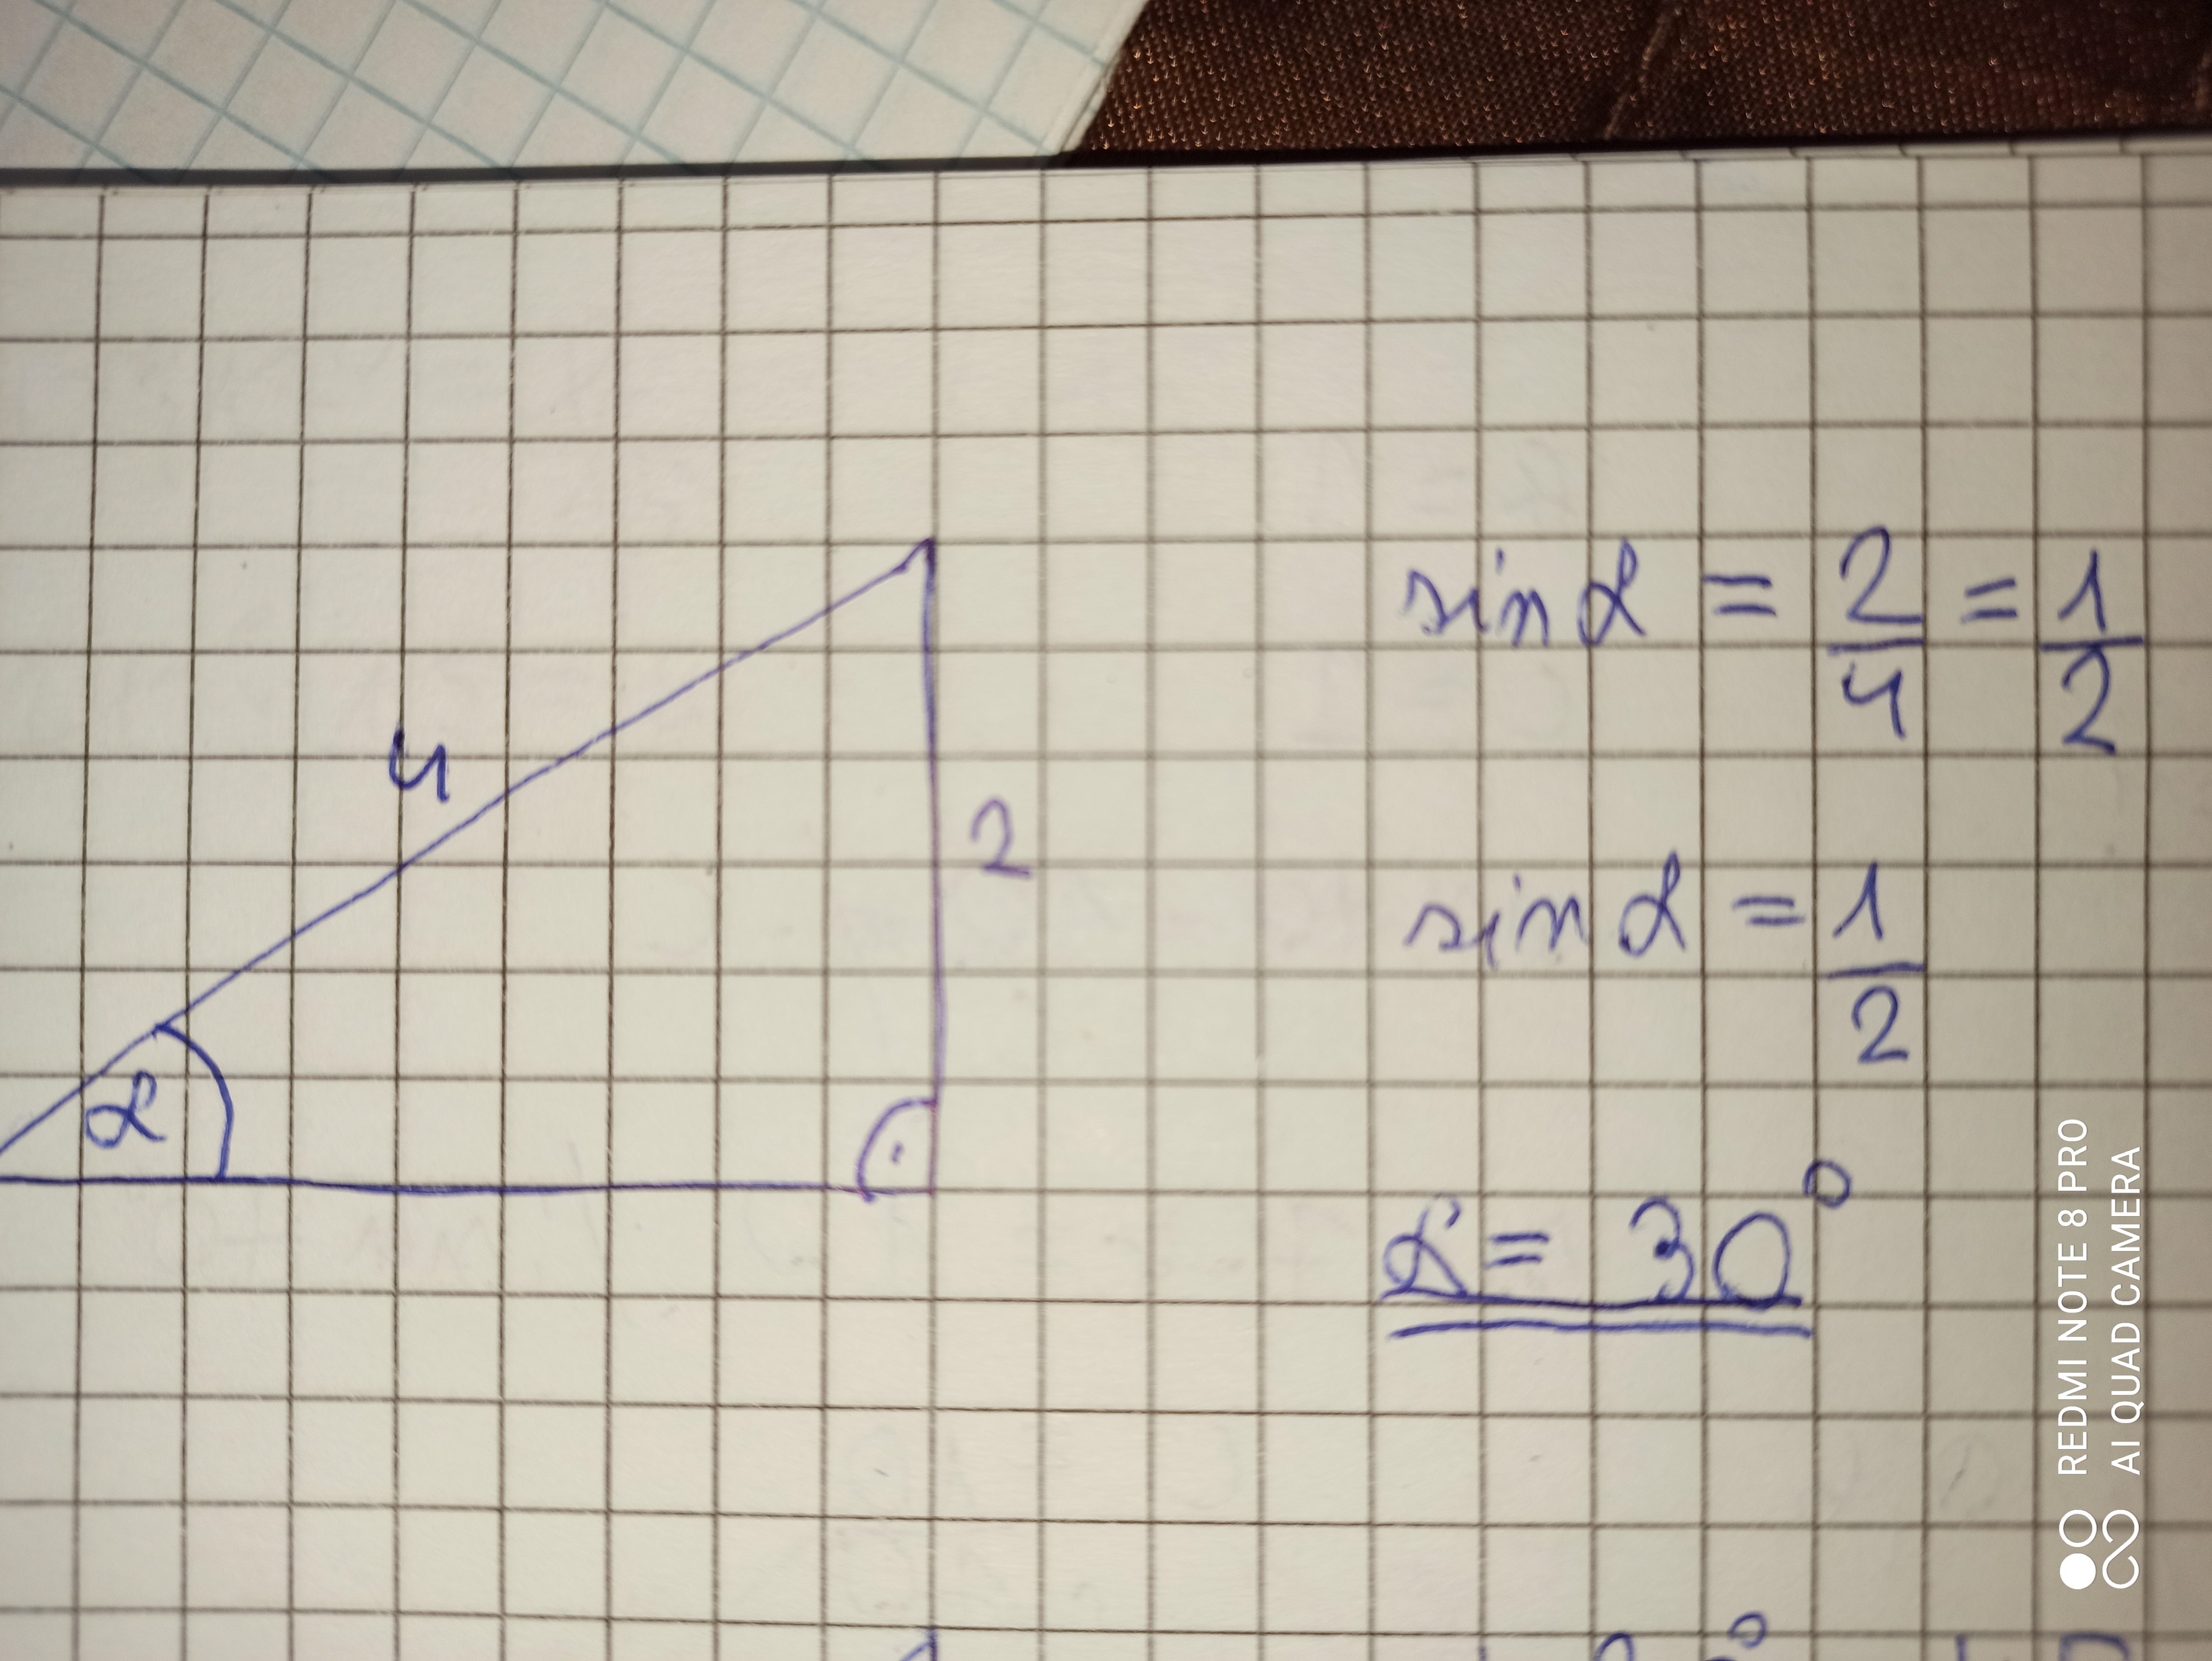 sin α = 2/4 = 1/2
4
2
sin α = 1/2
α
α = 30°
REDMI NOTE 8 PRO
AI QUAD CAMERA